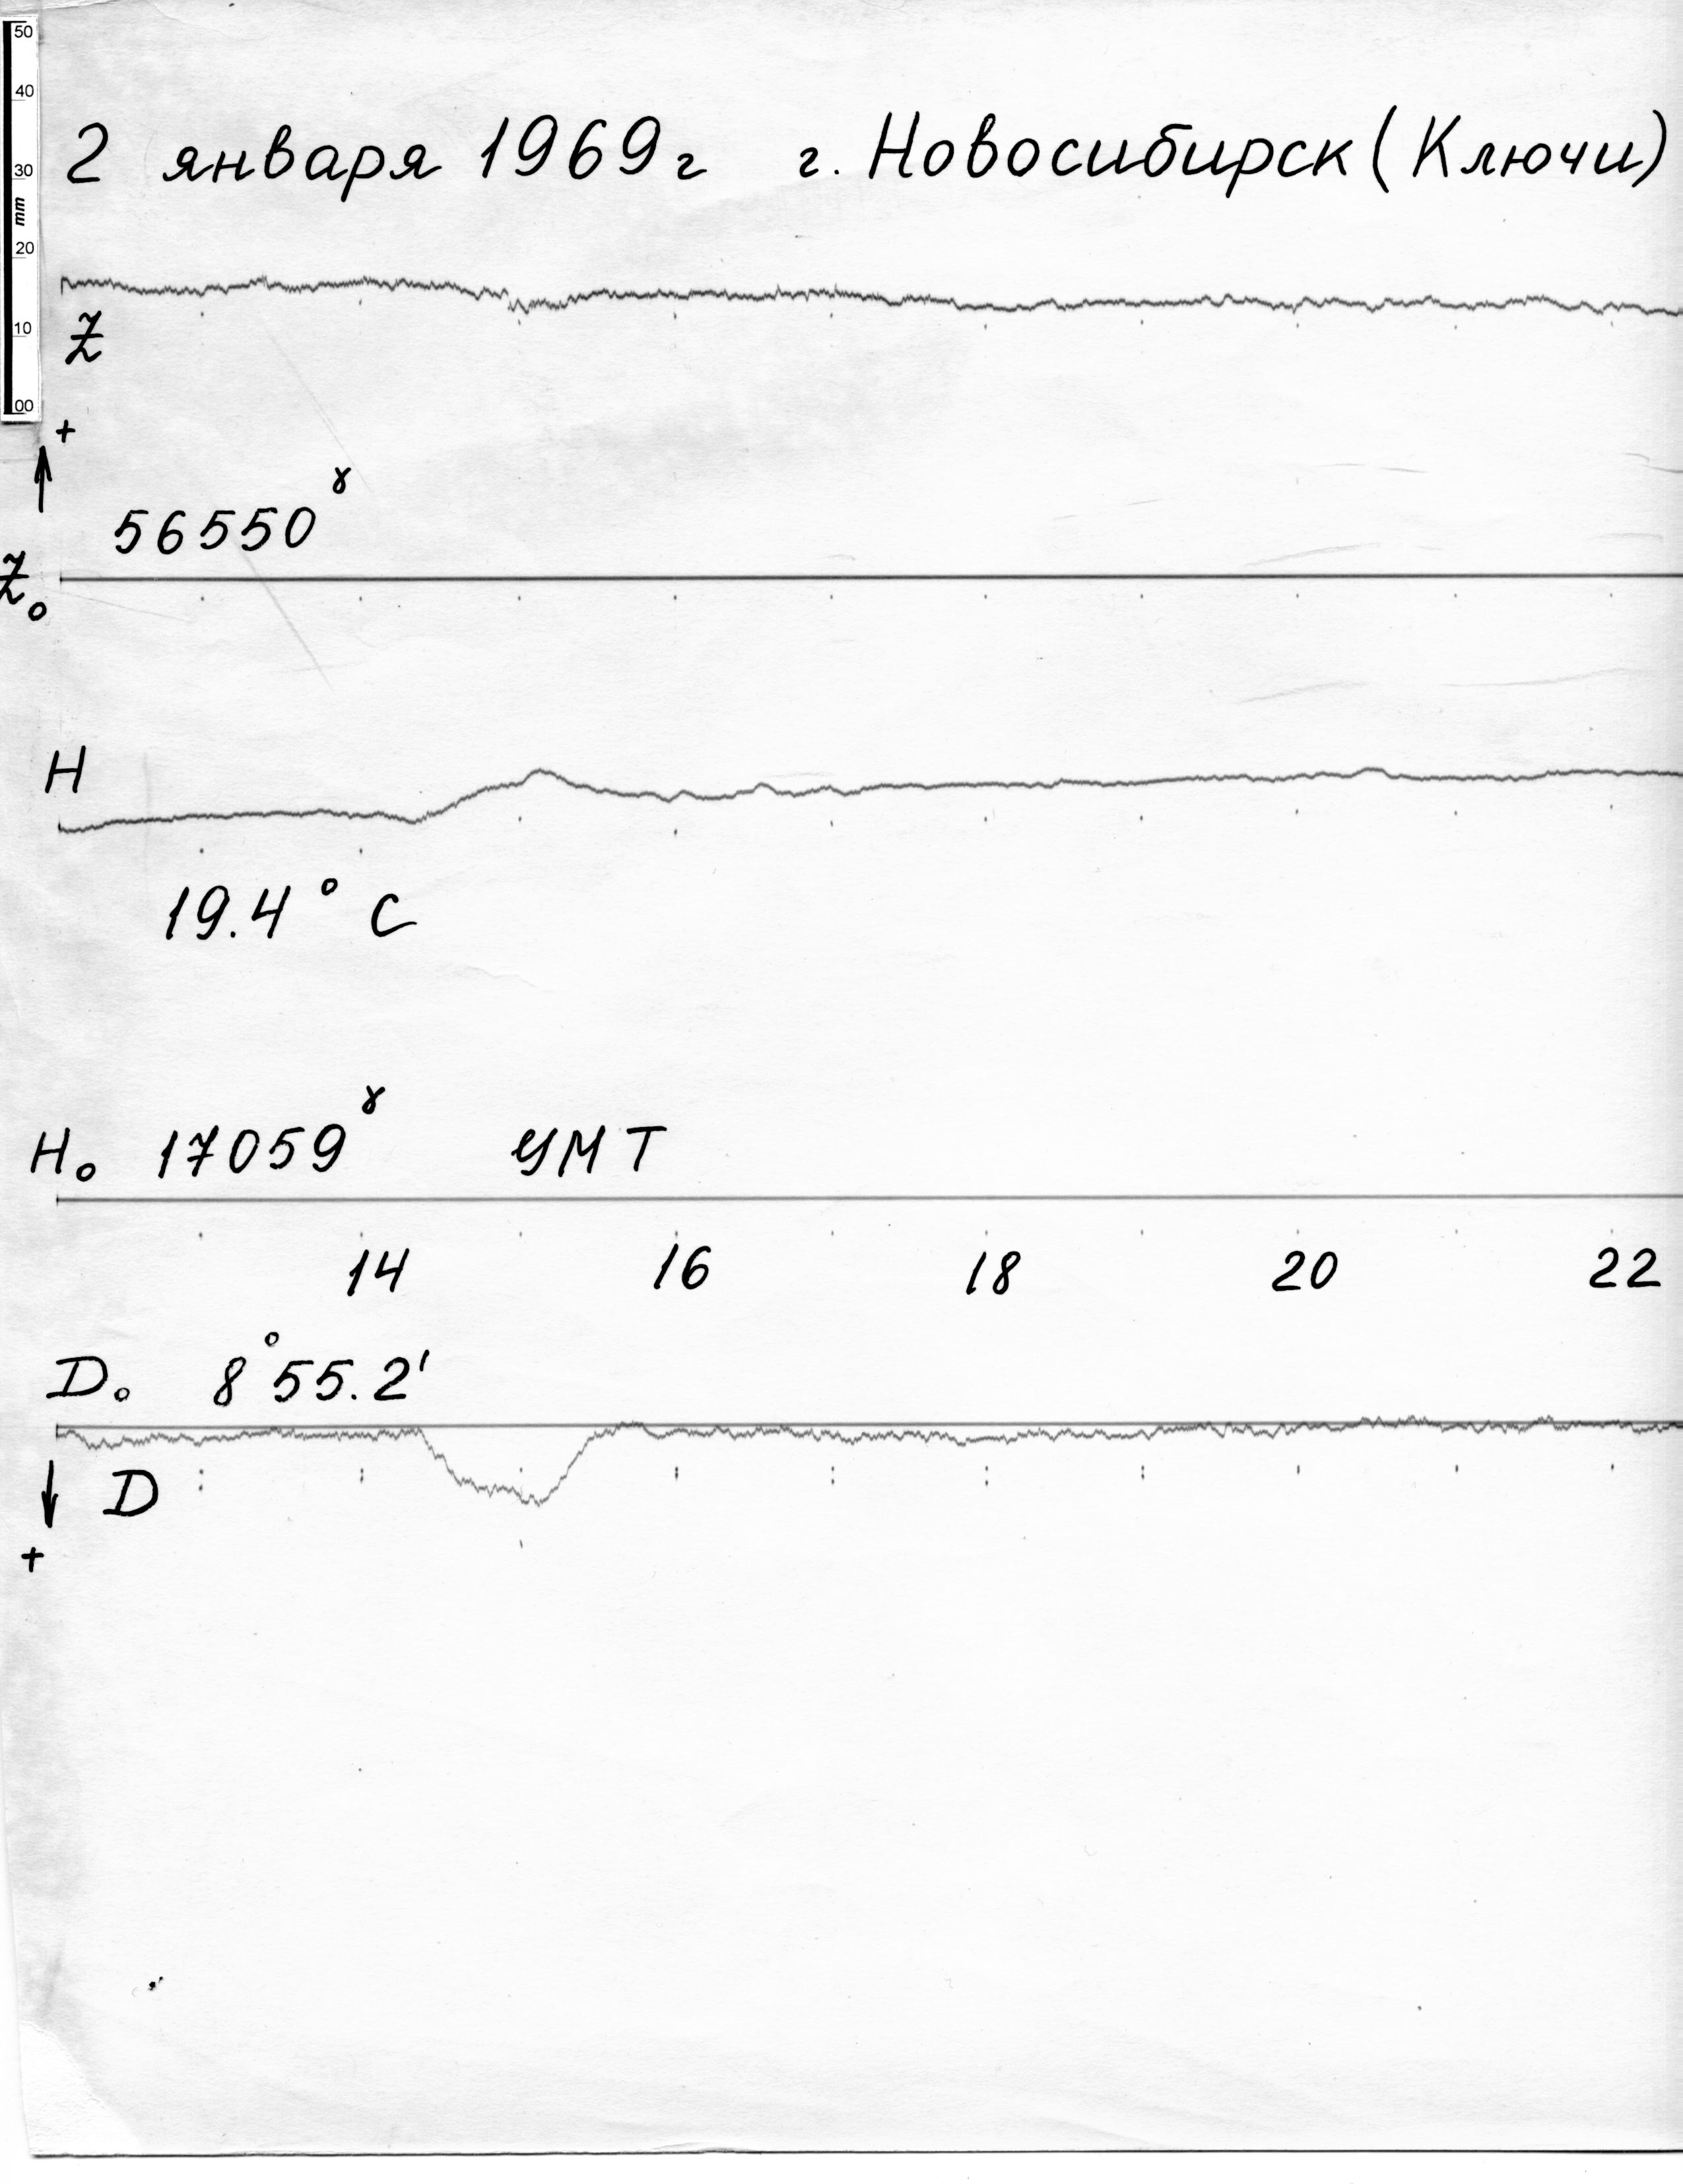 50
40
30
mm
20
10
00
2 января 1969 г г. Новосибирск (Ключи)
Z
+
56550 γ
Z₀
H
19.4° C
H₀ 17059 γ УМТ
14 16 18 20 22
D₀ 8°55.2'
D
+